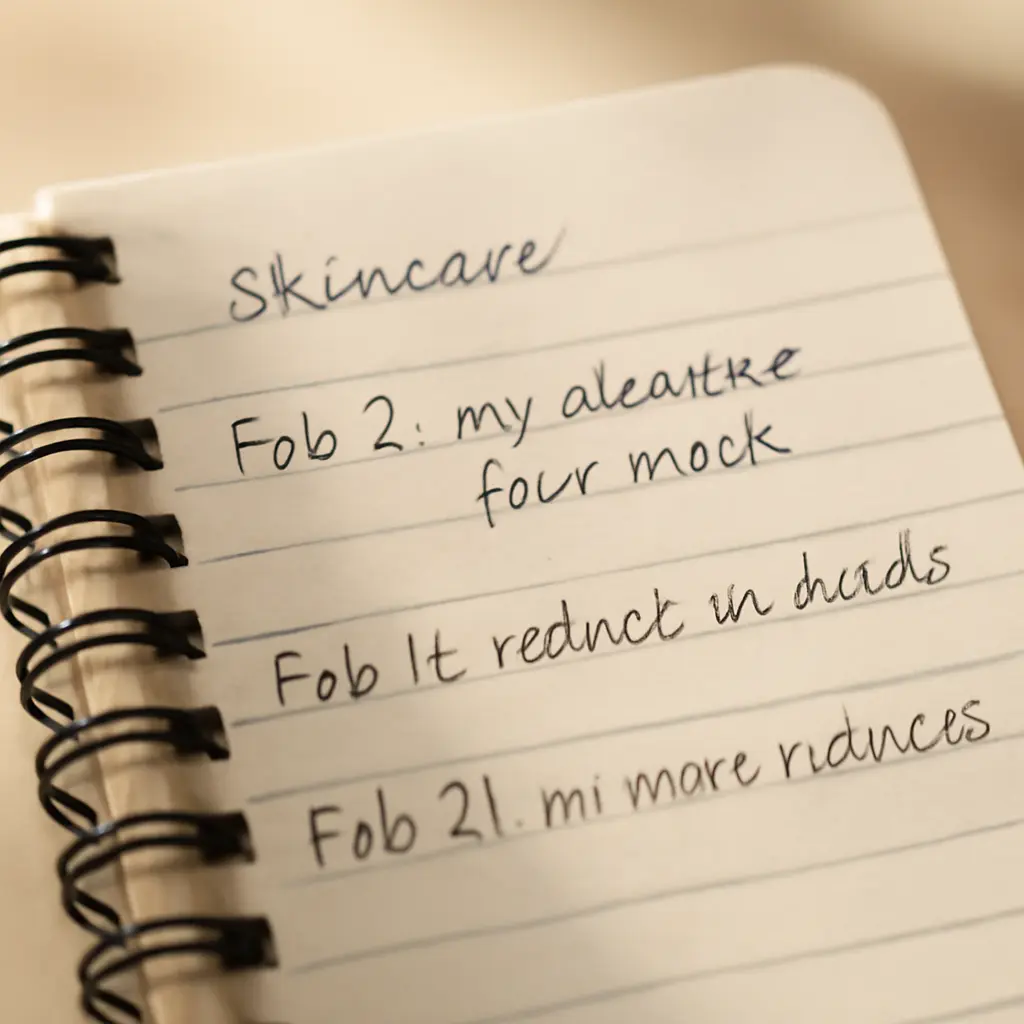 Skincare
Fob 2: my aleartke
four mock
Fob It rednct un dhcids
Fob 21. mi more ridnces